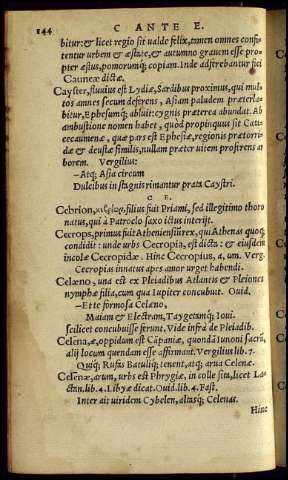 144 C ANTE E.
bitur: & licet regio sit valde felix, tamen omnes confi-
tentur urbem & æstate, & autumno gravem esse pro-
pter æstus, pomorumq; copiam. Inde adferebantur fici
Cauneæ dictæ.
Cayster, fluvius est Lydiæ, Sardibus proximus, qui mul-
tos amnes secum deferens, Asiam paludem præterla-
bitur, Ephesumq; abluit: cygnis præterea abundat. Ab
ambustione nomen habet, quòd propinquus sit Catace-
cecaumenæ, quæ pars est Ephesiæ, regionis prætorri-
dæ & deustæ similis, nullam præter vitem proferens ar
borem. Vergilius:
—Atq; Asia circum
Dulcibus in stagnis rimantur prata Caystri.
C E.
Cebrion, filius fuit Priami, sed illegitimo thoro
natus, qui à Patroclo saxo ictus interijt.
Cecrops, primus fuit Atheniensiū rex, qui Athenas quoq;
condidit: unde urbs Cecropia, est dicta: & eiusdem
incolæ Cecropidæ. Hinc Cecropius, a, um. Verg.
Cecropias innatus apes amor urget habendi.
Celæno, una est ex Pleiadibus Atlantis & Pleiones
nymphæ filia, cum qua Iupiter concubuit. Ovid.
—Et te formosa Celæno,
Maiam & Electram, Taygetamq; Ioui.
scilicet concubuisse ferunt. Vide infrà de Pleiadib.
Celenæ, æ, oppidum est Cāpaniæ, quondā Iunoni sacrū,
alij locum quendam esse affirmant. Vergilius lib. 7.
Quiq; Rufas Batulūq; tenent, atq; arua Celenæ.
Celenæ, arum, urbs est Phrygiæ, in colle sita, licet La-
ctan. lib. 4. Libyæ dicat. Ouid. lib. 4. Fast.
Inter ait viridem Cybelen, altasq; Celenas.
Hinc